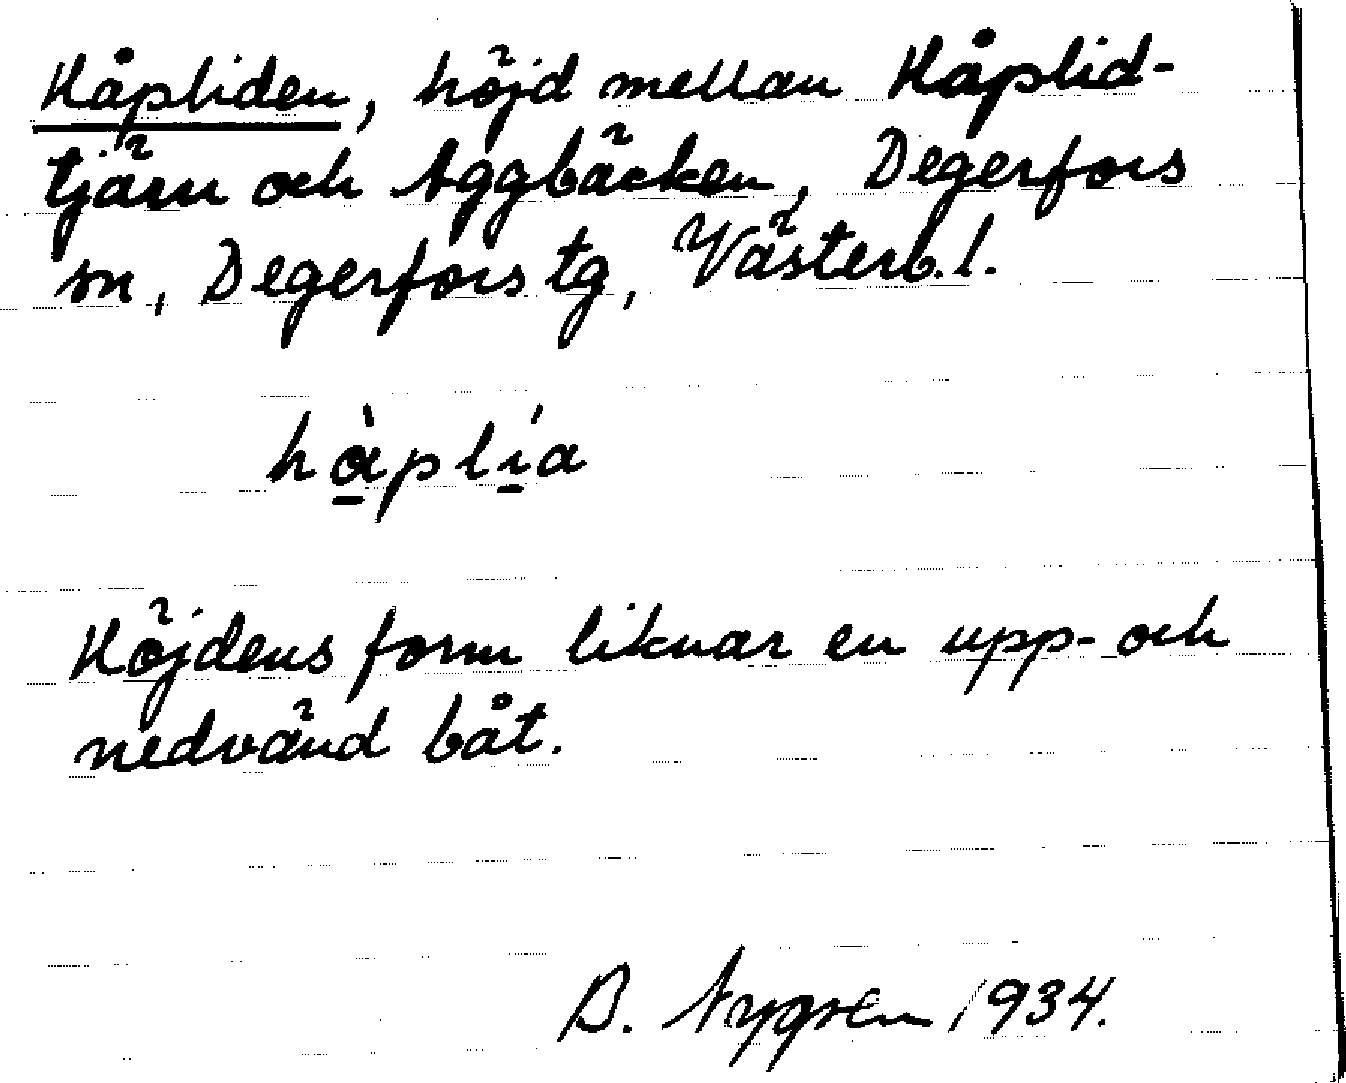 Håpliden, höjd mellan Håplid-
tjärn och Aggbäcken, Degerfors
sn, Degerfors tg, Västerb. l.
hà̱plí̱a
Höjdens form liknar en upp- och
nedvänd båt.
B. Nygren 1934.